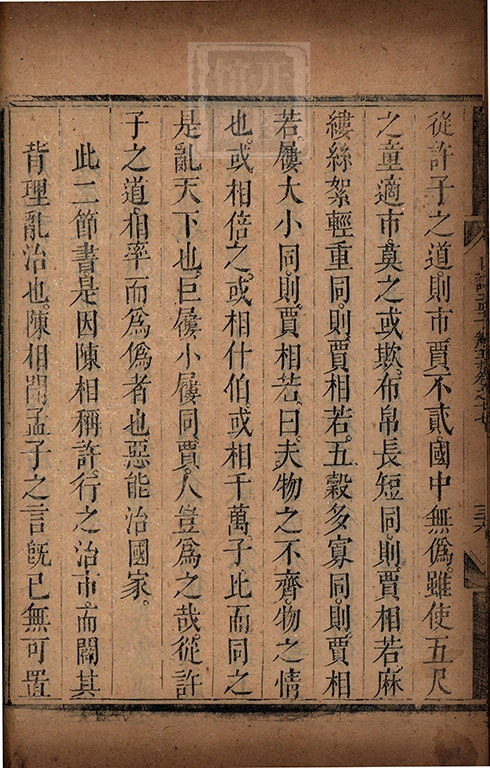 從許子之道則市賈不貳國中無僞雖使五尺
之童適市莫之或欺布帛長短同則賈相若麻
縷絲絮輕重同則賈相若五穀多寡同則賈相
若屨大小同則賈相若曰夫物之不齊物之情
也或相倍之或相什伯或相千萬子比而同之
是亂天下也巨屨小屨同賈人豈爲之哉從許
子之道相率而爲僞者也惡能治國家
此二節書是因陳相稱許行之治市而闢其
背理亂治也陳相聞孟子之言旣已無可置